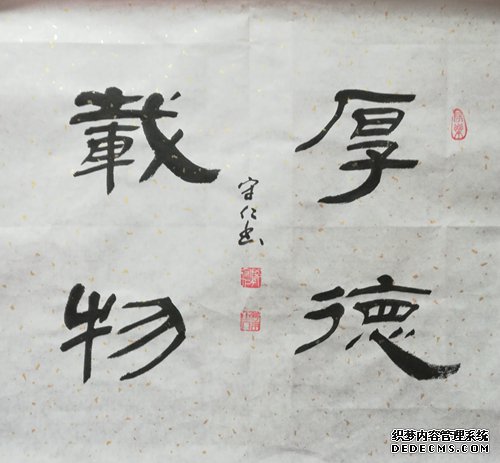 厚德
載物
守仁書
织梦内容管理系统
DEDECMS.COM